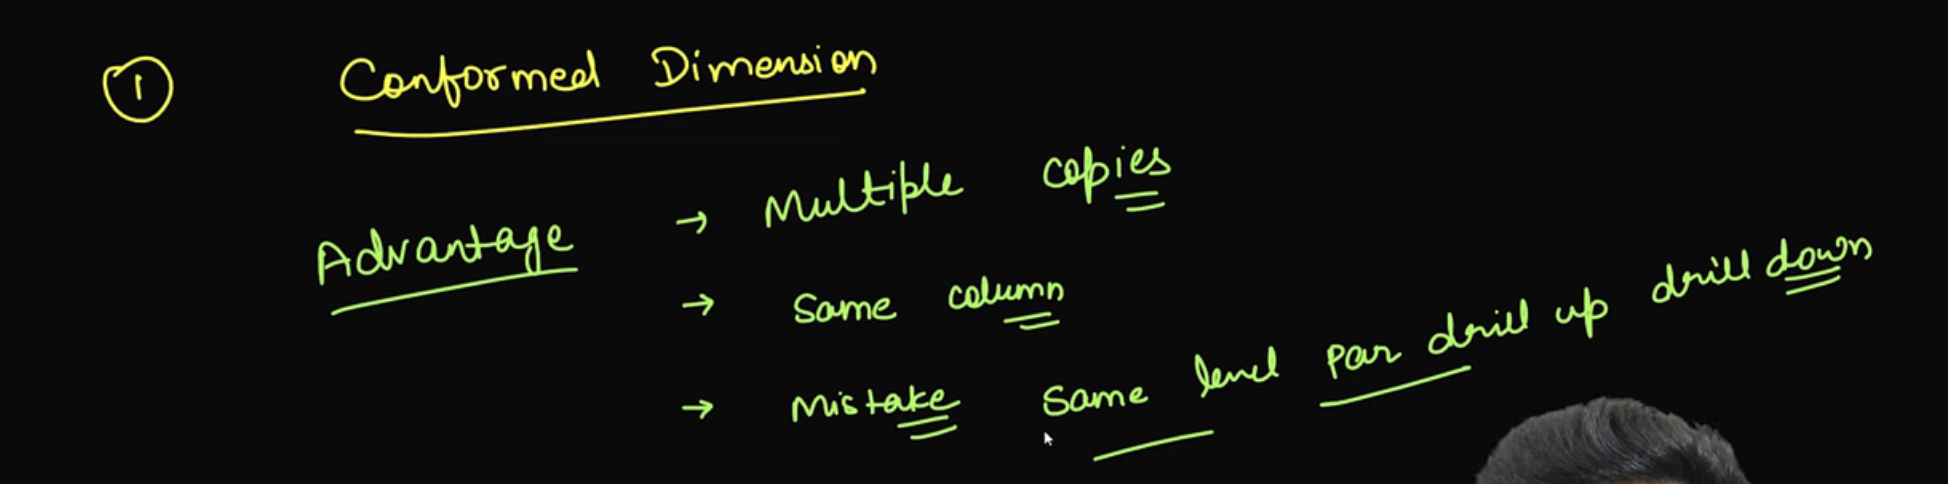 1 Conformed Dimension
Advantage → Multiple copies
→ Same column
→ Mistake Same level par drill up drill down